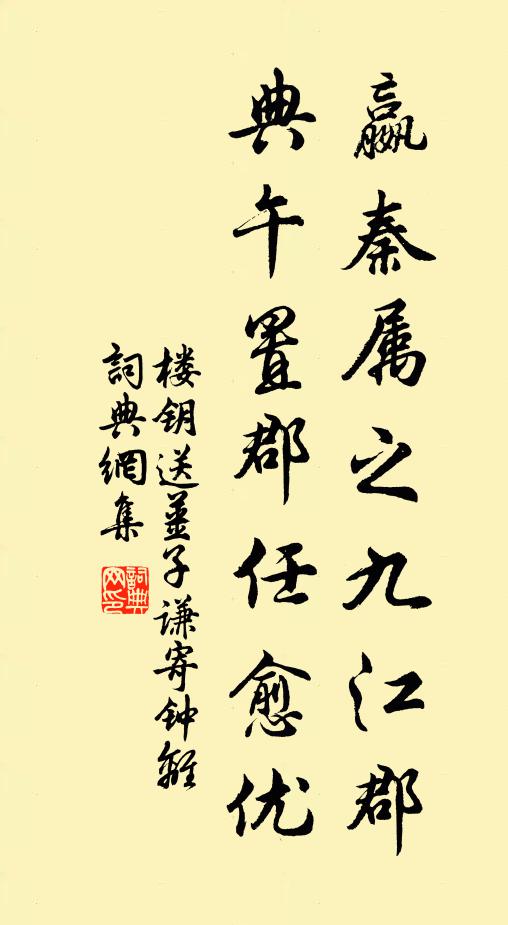 嬴秦属之九江郡
典午置郡任愈优
楼钥送姜子谦寄钟離
詞典網集
詞典網印